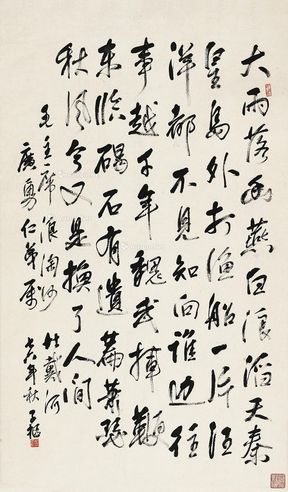 大雨落幽燕白浪滔天秦
皇岛外打渔船一片汪
洋都不见知向谁边往
事越千年魏武挥鞭
东临碣石有遗篇萧瑟
秋风今又是换了人间
毛主席浪淘沙 北戴河
广勇仁弟属 六年秋